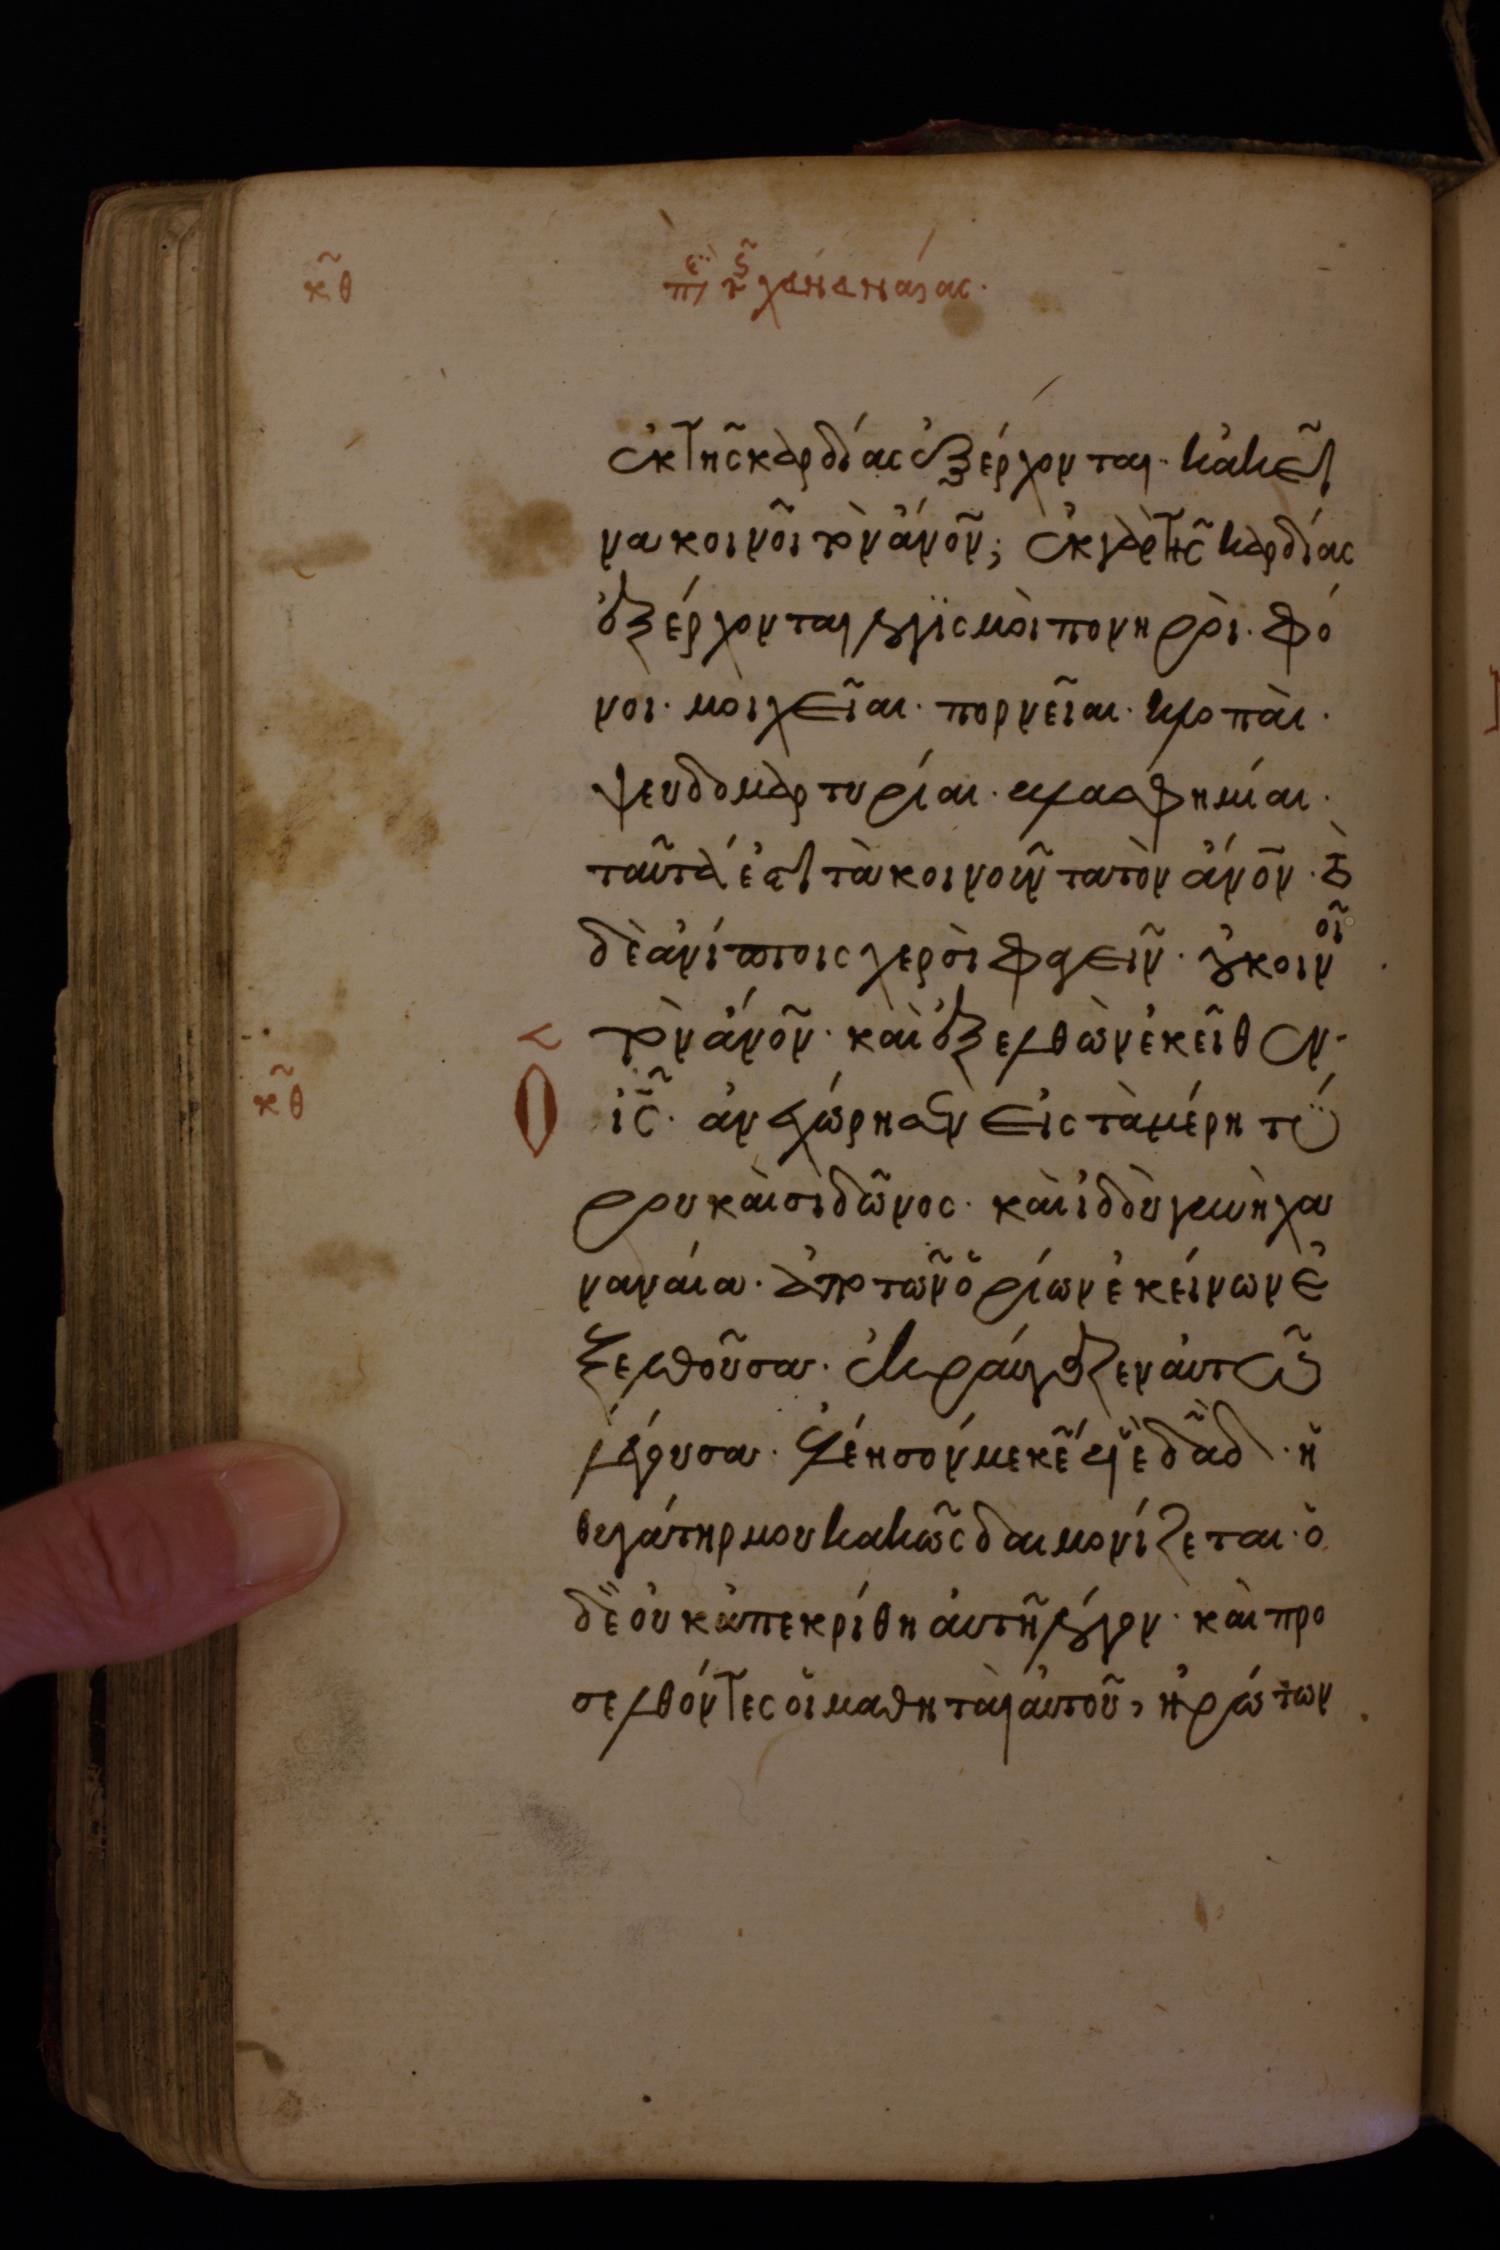 κθ περὶ τῆς χαναναίας.
ἐκ τῆς καρδίας ἐξέρχονται· κἀκεῖ
να κοινοῖ τὸν ἄνον̃; ἐκ γὰρ τῆς καρδίας
ἐξέρχονται λογϊσμοὶ πονηροὶ· φό
νοι· μοιχεῖαι· πορνεῖαι· κλοπαὶ·
ψευδομαρτυρίαι· βλασφημίαι·
ταῦτά ἐστι τὰ κοινοῦντα τὸν ἄνον̃· τὸ
δὲ ἀνίπτοις χερσὶ φαγεῖν· οὐ κοινοῖ
τὸν ἄνον̃· καὶ ἐξελθὼν ἐκεῖθεν·
κθ Ο ἰς̃· ἀνεχώρησεν εἰς τὰ μέρη τύ
ρου καὶ σιδῶνος· καὶ ἰδοὺ γυνὴ χα
ναναία· ἀπὸ τῶν ὁρίων ἐκείνων ἐ
ξελθοῦσα· ἐκραύγαζεν αὐτῶ
λέγουσα· ἐλέησόν με κε̃ υἱὲ δαδ̃· ἡ
θυγάτηρ μου κακῶς δαιμονίζεται· ὁ
δὲ οὐκ ἀπεκρίθη αὐτῆ λόγον· καὶ προ
σελθόντες οἱ μαθηταὶ αὐτοῦ, ἠρώτων